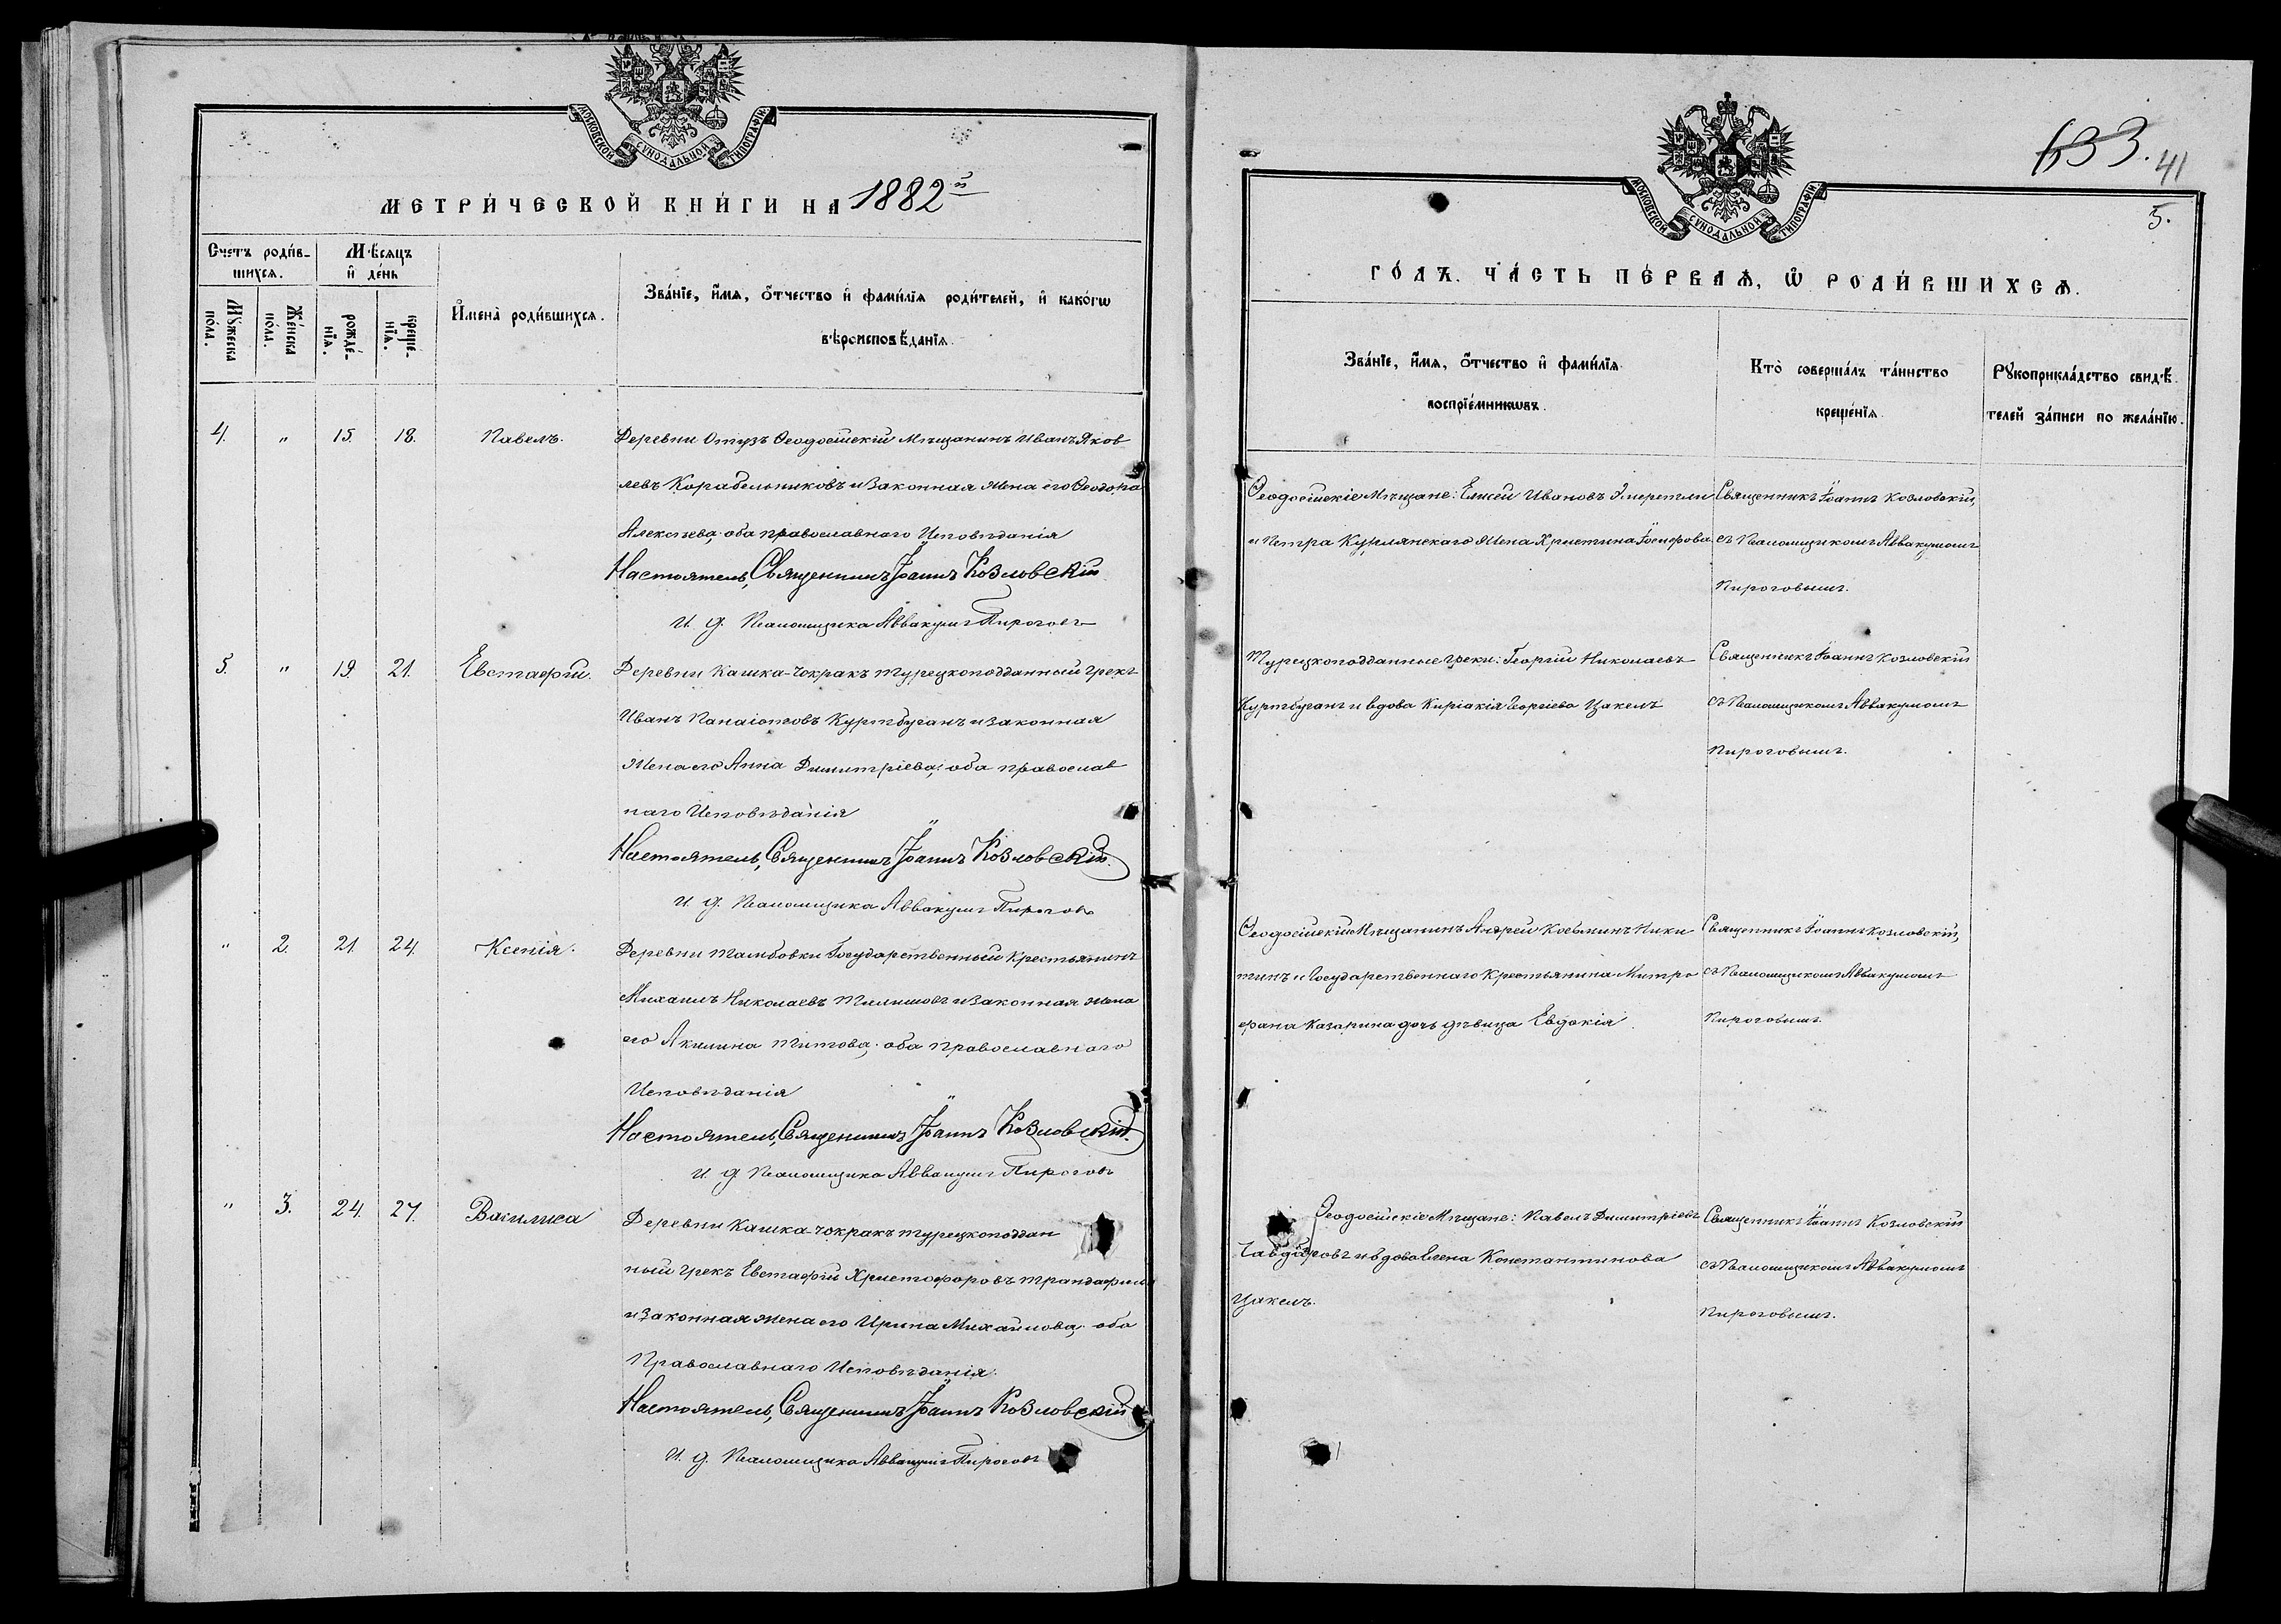 МОСКОВСКОЙ СѴНОДАЛЬНОЙ ТИПОГРАФІИ
МЕТРИ́ЧЕСКОЙ КНИ́ГИ НА 1882й
Счетъ роди́в-
шихся.
Мѣсяцъ
и҆ де́нь
Мꙋ́жеска
по́ла.
Же́нска
по́ла.
рожде́-
нїя.
креще́-
нїя.
И҆мена̀ роди́вшихся.
Зва́нїе, и҆́мя, ѻ҆́тчество и҆ фами́лїя роди́телей, и҆ како́гѡ
вѣроисповѣ́данїя.
4. " 15. 18. Павелъ. Деревни Отузъ Ѳеодосійскій Мѣщанинъ Иванъ Яков
левъ Корабельниковъ и законная жена его Ѳеодора
Алексѣева, оба православнаго Исповѣданія
Настоятель, Священникъ Іоаннъ Козловскій
И. д. Псаломщика Аввакумъ Пироговъ
5. " 19. 21. Евстафій. Деревни Кашка-чокракъ турецкоподданный грекъ
Иванъ Панаіотовъ Куртбуганъ и законная
жена его Анна Димитріева, оба православ
наго Исповѣданія
Настоятель, Священникъ Іоаннъ Козловскій.
И. д. Псаломщика Аввакумъ Пироговъ
" 2. 21. 24. Ксенія. Деревни Тамбовки Государственный Крестьянинъ
Михаилъ Николаевъ и законная жена
его Акилина Титова, оба Православнаго
Исповѣданія
Настоятель, Священникъ Іоаннъ Козловскій.
И. д. Псаломщика Аввакумъ Пироговъ
" 3. 24. 27. Василиса Деревни Кашка-чокракъ турецкоподдан
ный грекъ Евстафій Христофоровъ Трандафилъ
и законная жена его Ирина Михайлова, оба
Православнаго Исповѣданія.
Настоятель, Священникъ Іоаннъ Козловскій
И. д. Псаломщика Аввакумъ Пироговъ
МОСКОВСКОЙ СѴНОДАЛЬНОЙ ТИПОГРАФІИ
633. 41
5.
ГО́ДЪ. ЧА́СТЬ ПЕ́РВАѦ, Ѡ҆ РОДИ́ВШИХСѦ.
Зва́нїе, и҆́мя, ѻ҆́тчество и҆ фами́лїя
воспрїе́мникѡвъ.
Кто̀ соверша́лъ та́инство
креще́нїя.
Рꙋкоприкла́дство свидѣ́-
телей за́писи по жела́нїю.
Ѳеодосійскіе Мѣщане: Елисей Ивановъ
и Петра Курлянскаго жена Христина Іосифова
Священникъ Іоаннъ Козловскій,
съ Псаломщикомъ Аввакумомъ
Пироговымъ.
Турецкоподданные греки: Георгій Николаевъ
Куртбуганъ и вдова Киріакія Георгіева Цакелъ
Священникъ Іоаннъ Козловскій
съ Псаломщикомъ Аввакумомъ
Пироговымъ.
Ѳеодосійскій Мѣщанинъ Андрей Косьминъ Ники
тинъ и Государственнаго Крестьянина Митро
фана Казарина дочь дѣвица Евдокія.
Священникъ Іоаннъ Козловскій,
съ Псаломщикомъ Аввакумомъ
Пироговымъ.
Ѳеодосійскіе Мѣщане: Павелъ Димитріевъ
Чавдаровъ и вдова Елена Константинова
Цакелъ.
Священникъ Іоаннъ Козловскій
съ Псаломщикомъ Аввакумомъ
Пироговымъ.